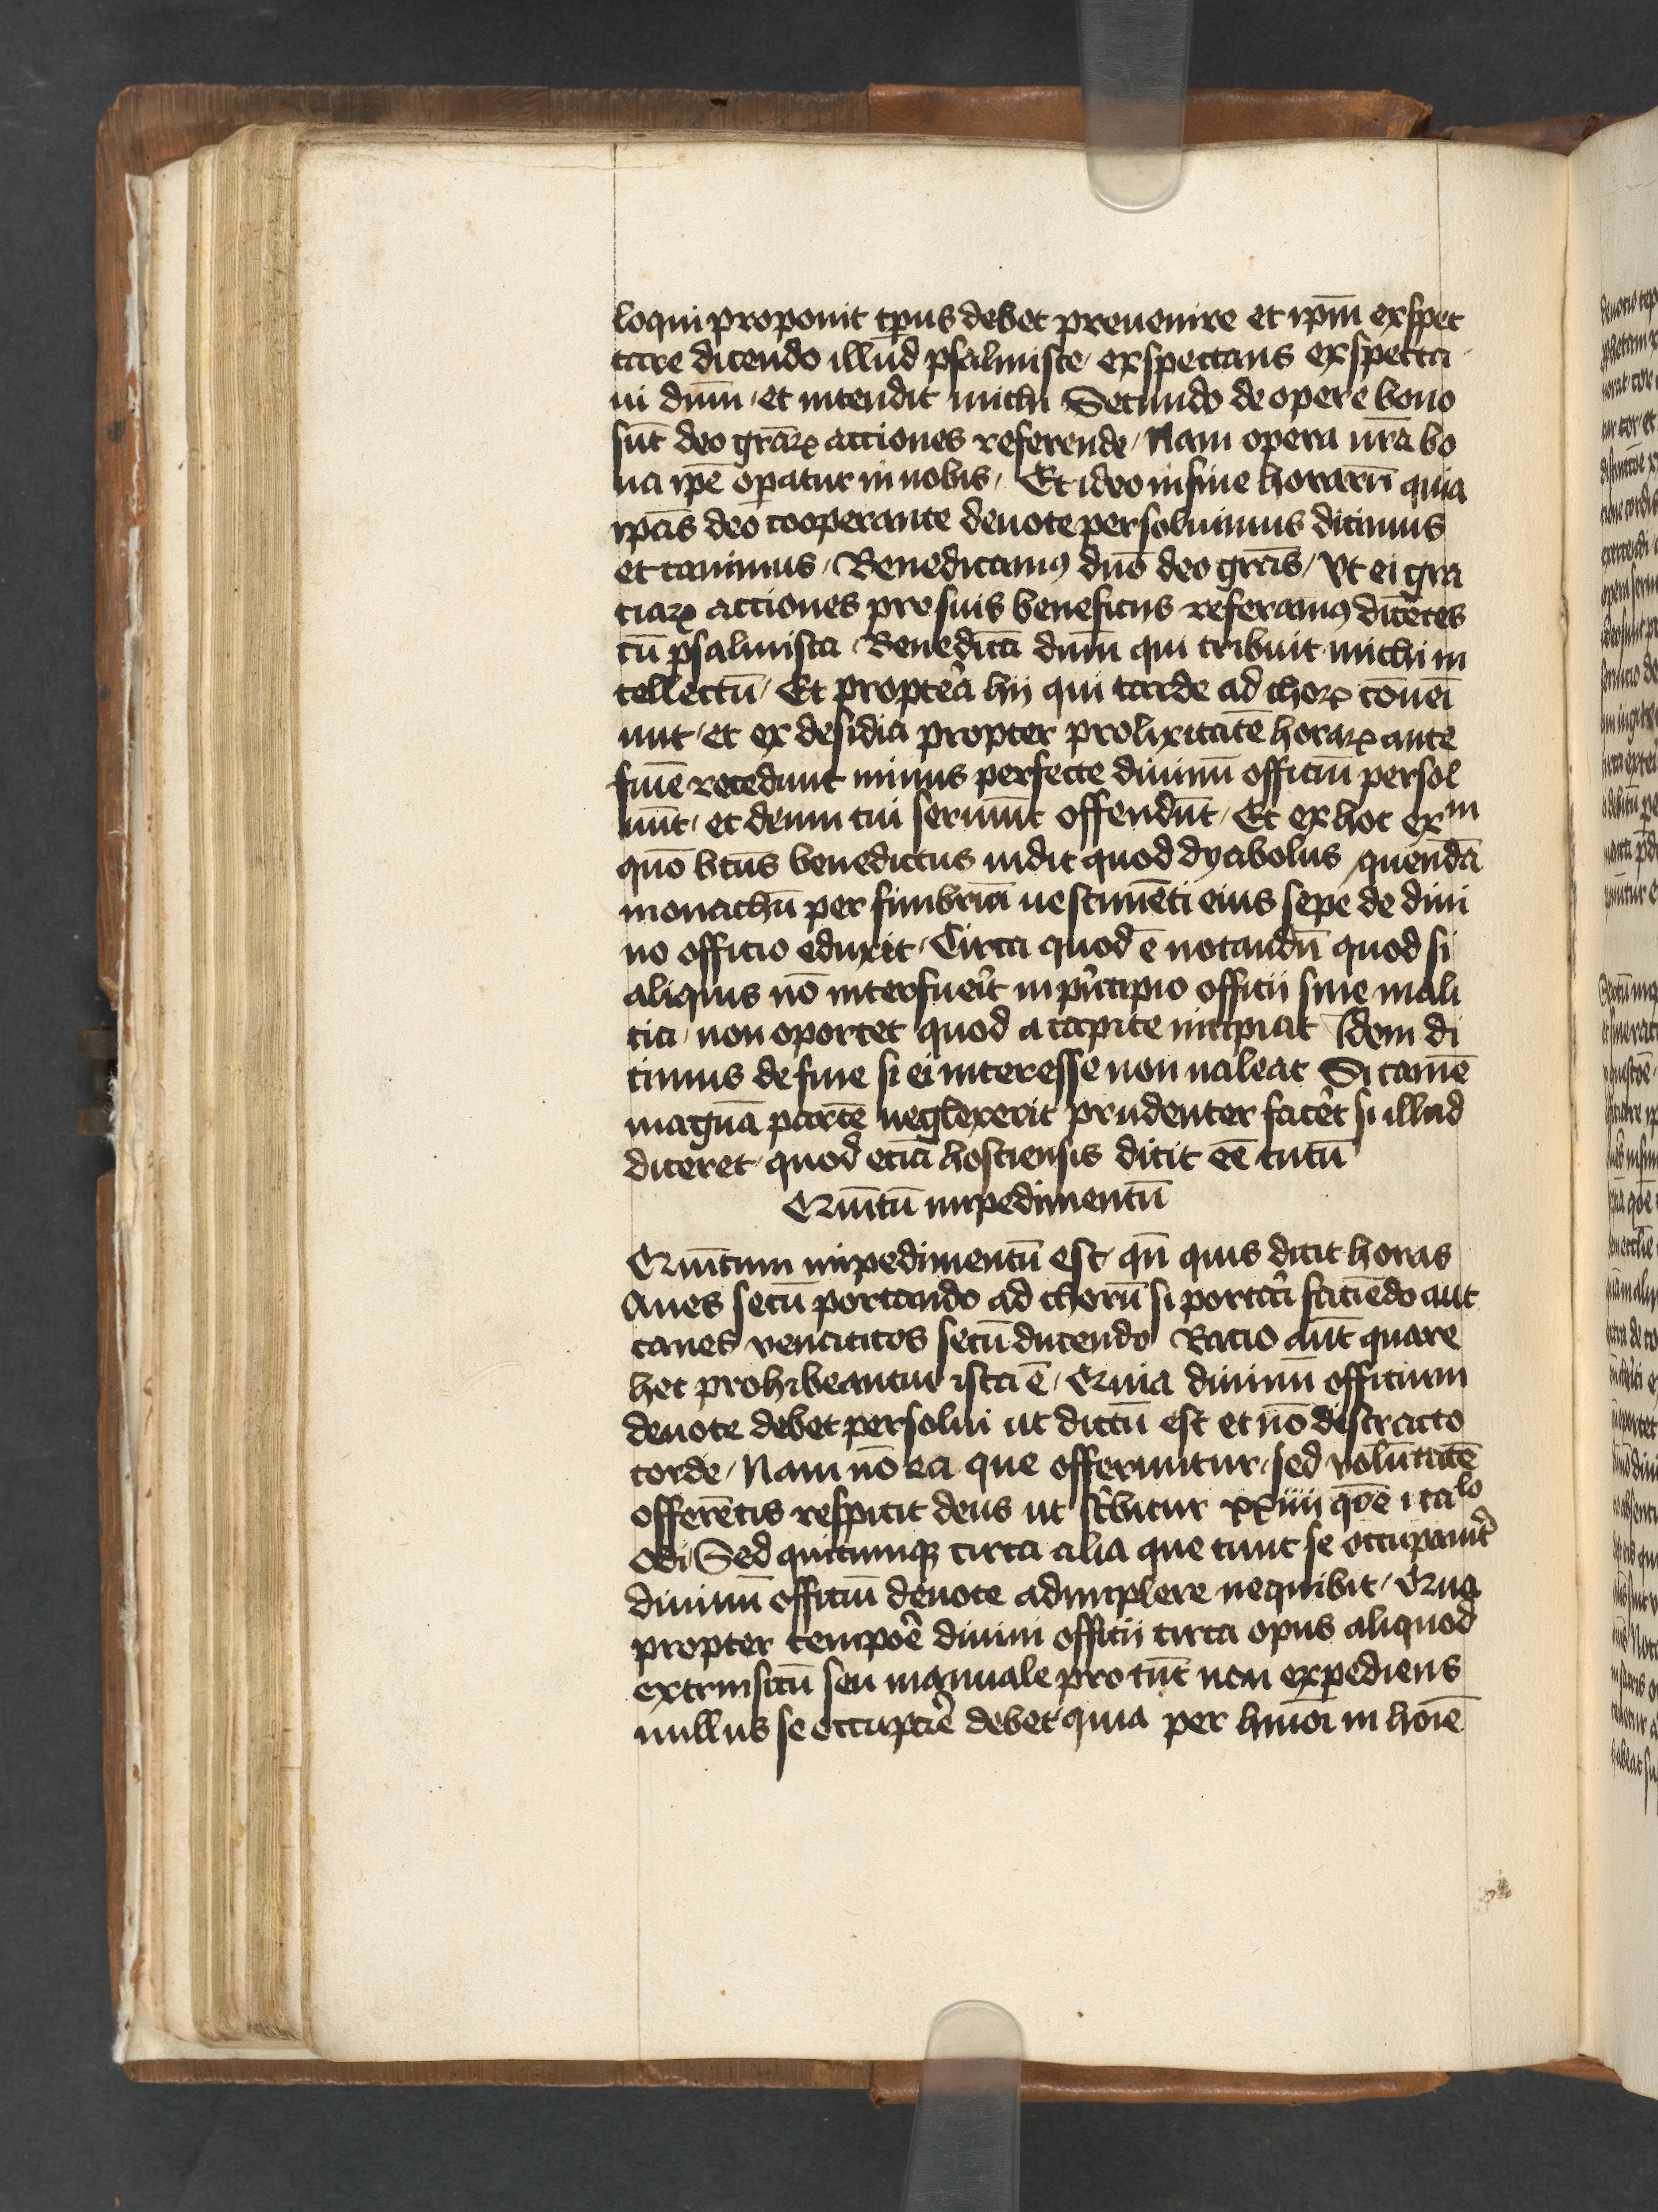 loqui proponit tp̄us debet preuenire et ip̄m exspec
tare dicendo illud psalmiste / exspectans exspecta
ui dn̄m / et intendit michi Secundo de opere bono
sūt deo grār̄ꝝ acciones referende / Nam opera nr̄a bo
na ip̄e op̄atur in nobis / Et ideo in fine horarū quia
ip̄as deo cooperante deuote persoluimus dicimus
et canimus / Benedicamꝰ dn̄o deo grās / Vt ei gra
ciaꝝ acciones pro suis beneficiis referamꝰ dicētes
cū psalmista / Benedicā dn̄m qui tribuit michi in
tellectū / Et propterea hij qui tarde ad choꝝ cōuei
unt / et ex desidia propter prolixitatē horaꝝ ante
finē recedunt minus perfecte diuinū officiū persol
uūt / et deum cui seruiūt offendūt / Et ex hoc ex in
quō btūs benedictus uidit quod dyabolus quendā
monachū per fimbriā uestimēti eius sepe de diui
no officio eduxit / Circa quod ē notandū quod si
aliquis nō interfuerit in pͥncipio officii sine mali
cia / non oportet quod a capite incipiat Idem di
cimus de fine si ei interesse non ualeat Si tamē
magnā partē neglexerit prudenter facēt si illud
diceret / quod eciā hostiensis dicit eē tutū
Quītū impedimentū
Quītum impedimentū est / qn̄ quis dicit horas
Aues secū portando ad chorū si portari faciēdo aut
canes venaticos secū ducendo Racio aūt quare
hec prohibeantur ista ē / Quia diuinū officium
deuote debet persolui ut dictū est et nō distracto
corde / Nam nō ea que offeruntur / sed volūtatē
offerētis respicit deus ut scͥbitur xxiiii qōe i ca lo
odi / Sed quicumqꝫ circa alia que tunc se occupauit̉
diuinū officiū deuote adimplere nequibit / Qua
propter tempoē diuini officii circa opus aliquod
extrinsecū seu manuale pro tūc non expediens
nullus se occupare debet quia per hmōi in hoīe